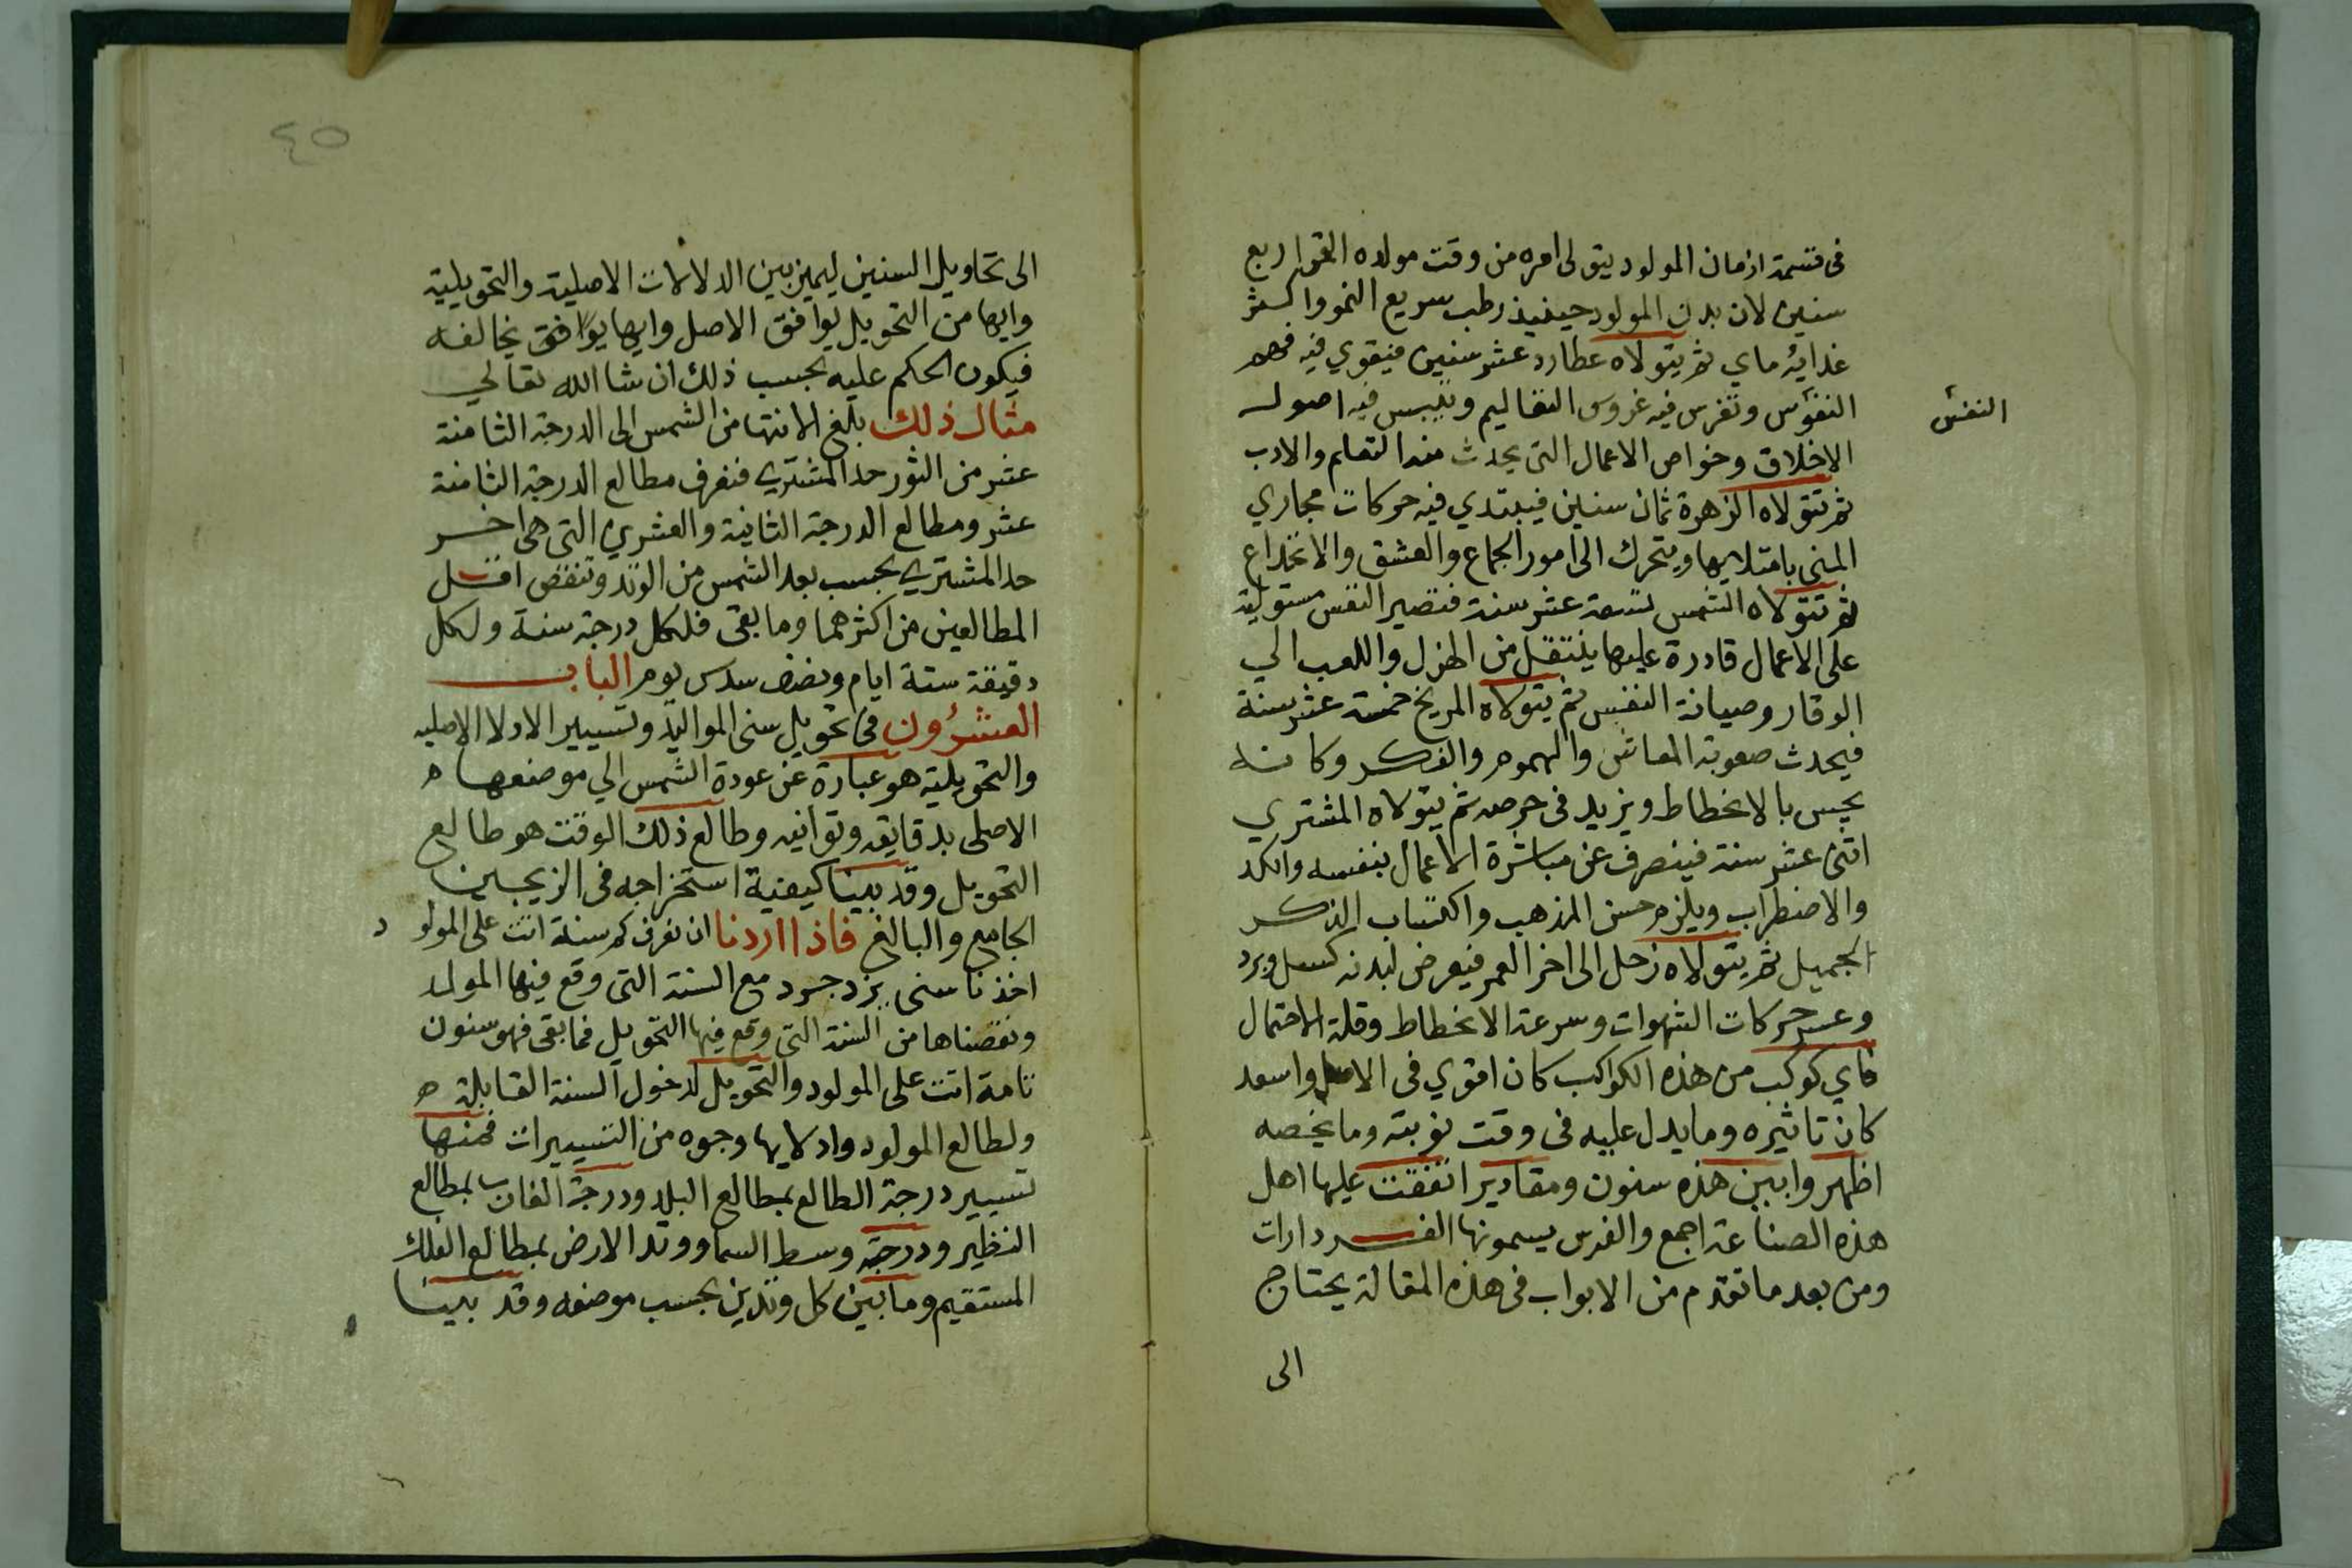 فى قسمة ازمان المولود يتولى امره من وقت مولده القمر اربع
سنين لان بدن المولود حينيذ رطب سريع النمو واكثر
غدايه ماي ثم يتولاه عطارد عشر سنين فيقوي فيه فهم
النفوس وتغرس فيه غروس التعاليم وتيبس فيه اصول
النفس
الاخلاق وخواص الاعمال التى يحدث منه التعلم والادب
ثم تتولاه الزهرة ثمان سنين فيبتدي فيه حركات مجاري
المنى بامتلايها ويتحرك الى امور الجماع والعشق والانخداع
ثم تتولاه الشمس تسعة عشر سنة فتصير النفس مستولية
على الاعمال قادرة عليها ينتقل من الهزل واللعب الي
الوقار وصيانة النفس ثم يتولاه المريخ خمسة عشر سنة
فيحدث صعوبة المعاش والهموم والفكر وكانه
يحس بالانحطاط ويزيد فى حرصه ثم يتولاه المشتري
اثنى عشر سنة فينصرف عن مباشرة الاعمال بنفسه والكد
والاضطراب ويلزم حسن المذهب واكتساب الذكر
الجميل ثم يتولاه زحل الى اخر العمر فيعرض لبدنه كسل وبرد
وعسر حركات الشهوات وسرعة الانحطاط وقلة الاحتمال
فاي كوكب من هذه الكواكب كان اقوي فى الاصل واسعد
كان تاثيره وما يدل عليه فى وقت نوبته وما يخصه
اظهر وابين هذه سنون ومقادير اتفقت عليها اهل
هذه الصناعة اجمع والفرس يسمونها الفردارات
ومن بعد ما تقدم من الابواب فى هذه المقالة يحتاج
الى
٤٥
الى تحاويل السنين ليميز بين الدلالات الاصلية والتحويلية
وايها من التحويل يوافق الاصل وايها يوافق يخالفه
فيكون الحكم عليه بحسب ذلك ان شا الله تعالي
مثال ذلك بلغ الانتها من الشمس الى الدرجة الثامنة
عشر من الثور حد المشتري فنعرف مطالع الدرجة الثامنة
عشر ومطالع الدرجة الثانية والعشرين التى هى اخر
حد المشتري بحسب بعد الشمس من الوتد وتنقض اقل
المطالعين من اكثرهما وما بقى فلكل درجة سنة ولكل
دقيقة ستة ايام ونصف سدس يوم الباب
العشرون فى تحويل سنى المواليد وتسيير الادلا الاصليه
والتحويلية هو عبارة عن عودة الشمس الي موضعها ه
الاصلى بدقايقه وثوانيه وطالع ذلك الوقت هو طالع
التحويل وقد بينا كيفية استخراجه فى الزيجين
الجامع والبالغ فاذا اردنا ان نعرف كم سنة اتت على المولود
اخذنا سنى يزدجرد مع السنة التى وقع فيها المولد
ونقصناها من السنة التى وقع فيها التحويل فما بقى فهو سنون
تامة اتت على المولود والتحويل لدخول السنة القابلة ه
ولطالع المولود وادلايها وجوه من التسييرات فمنها
تسيير درجة الطالع بمطالع البلد ودرجة الغارب بمطالع
النظير ودرجة وسط السما ووتد الارض بمطالع الفلك
المستقيم وما بين كل وتدين بحسب موضعه وقد بينا